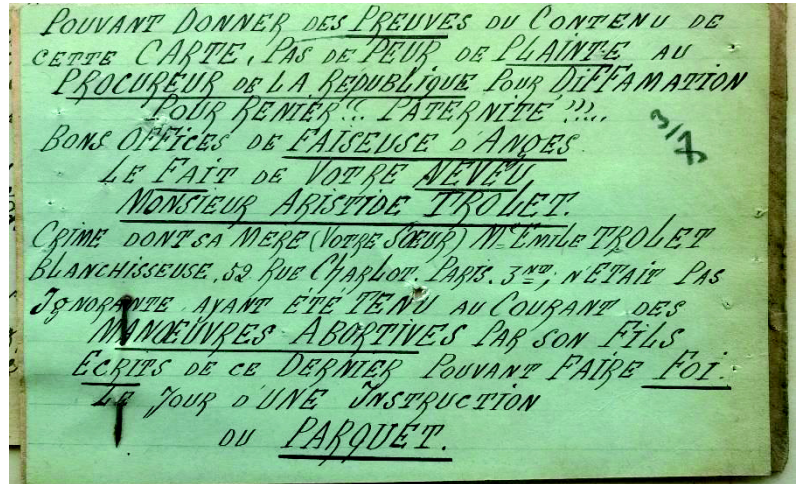 POUVANT DONNER DES PREUVES DU CONTENU DE
CETTE CARTE, PAS DE PEUR DE PLAINTE AU
PROCUREUR DE LA REPUBLIQUE POUR DIFFAMATION
POUR RENIER!!. PATERNITE!!!..
3/7
BONS OFFICES DE FAISEUSE D'ANGES.
LE FAIT DE VOTRE NEVEU
MONSIEUR ARISTIDE TROLET.
CRIME DONT SA MERE (VOTRE SŒUR) Me EMILE TROLET
BLANCHISSEUSE, 52 RUE CHARLOT. PARIS. 3me; N'ETAIT PAS
IGNORANTE AYANT ÉTÉ TENU AU COURANT DES
MANŒUVRES ABORTIVES PAR SON FILS
ECRITS DE CE DERNIER POUVANT FAIRE FOI.
LE JOUR D'UNE INSTRUCTION
DU PARQUET.